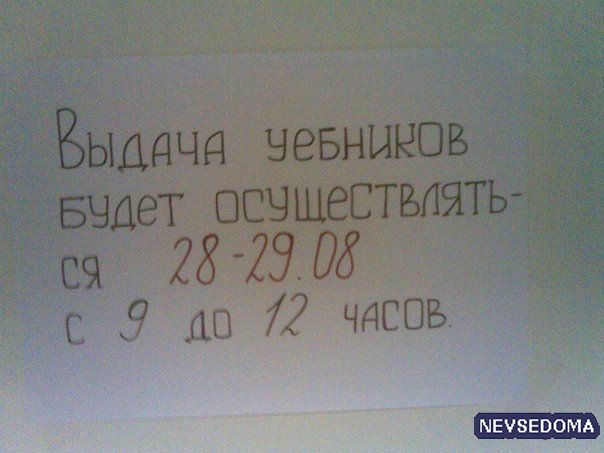 Выдача уебников
будет осуществлять-
ся 28-29.08
с 9 до 12 часов.
NEVSEDOMA